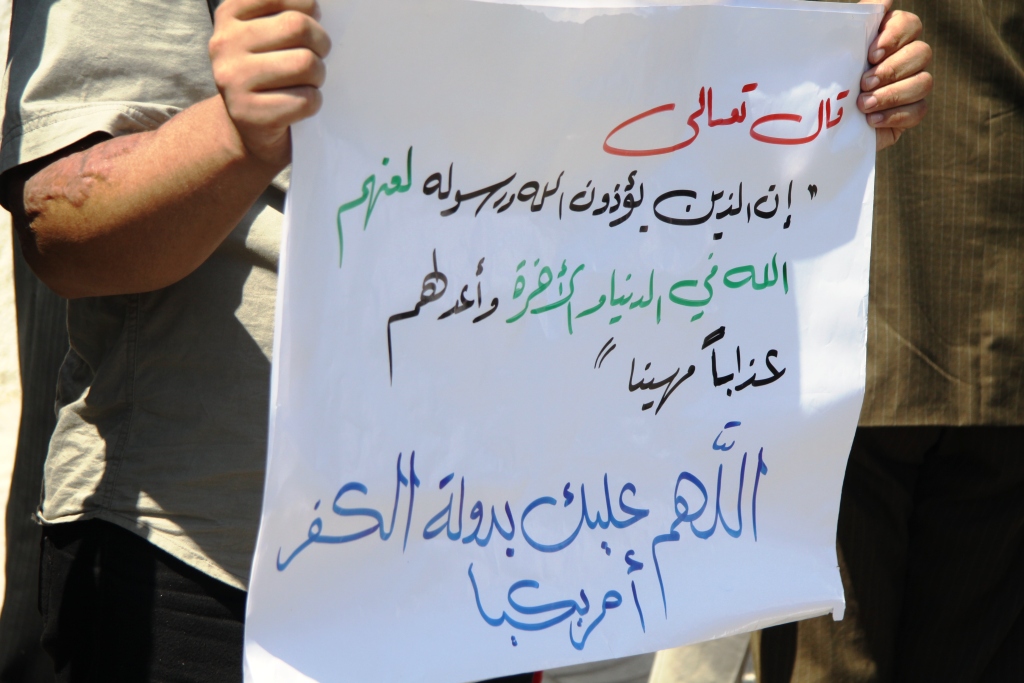 قال تعالى
" إن الذين يؤذون الله ورسوله لعنهم
الله في الدنيا والأخرة وأعد لهم
عذاباً مهينا "
اللَّهم عليك بدولة الكفر
أمريكيا